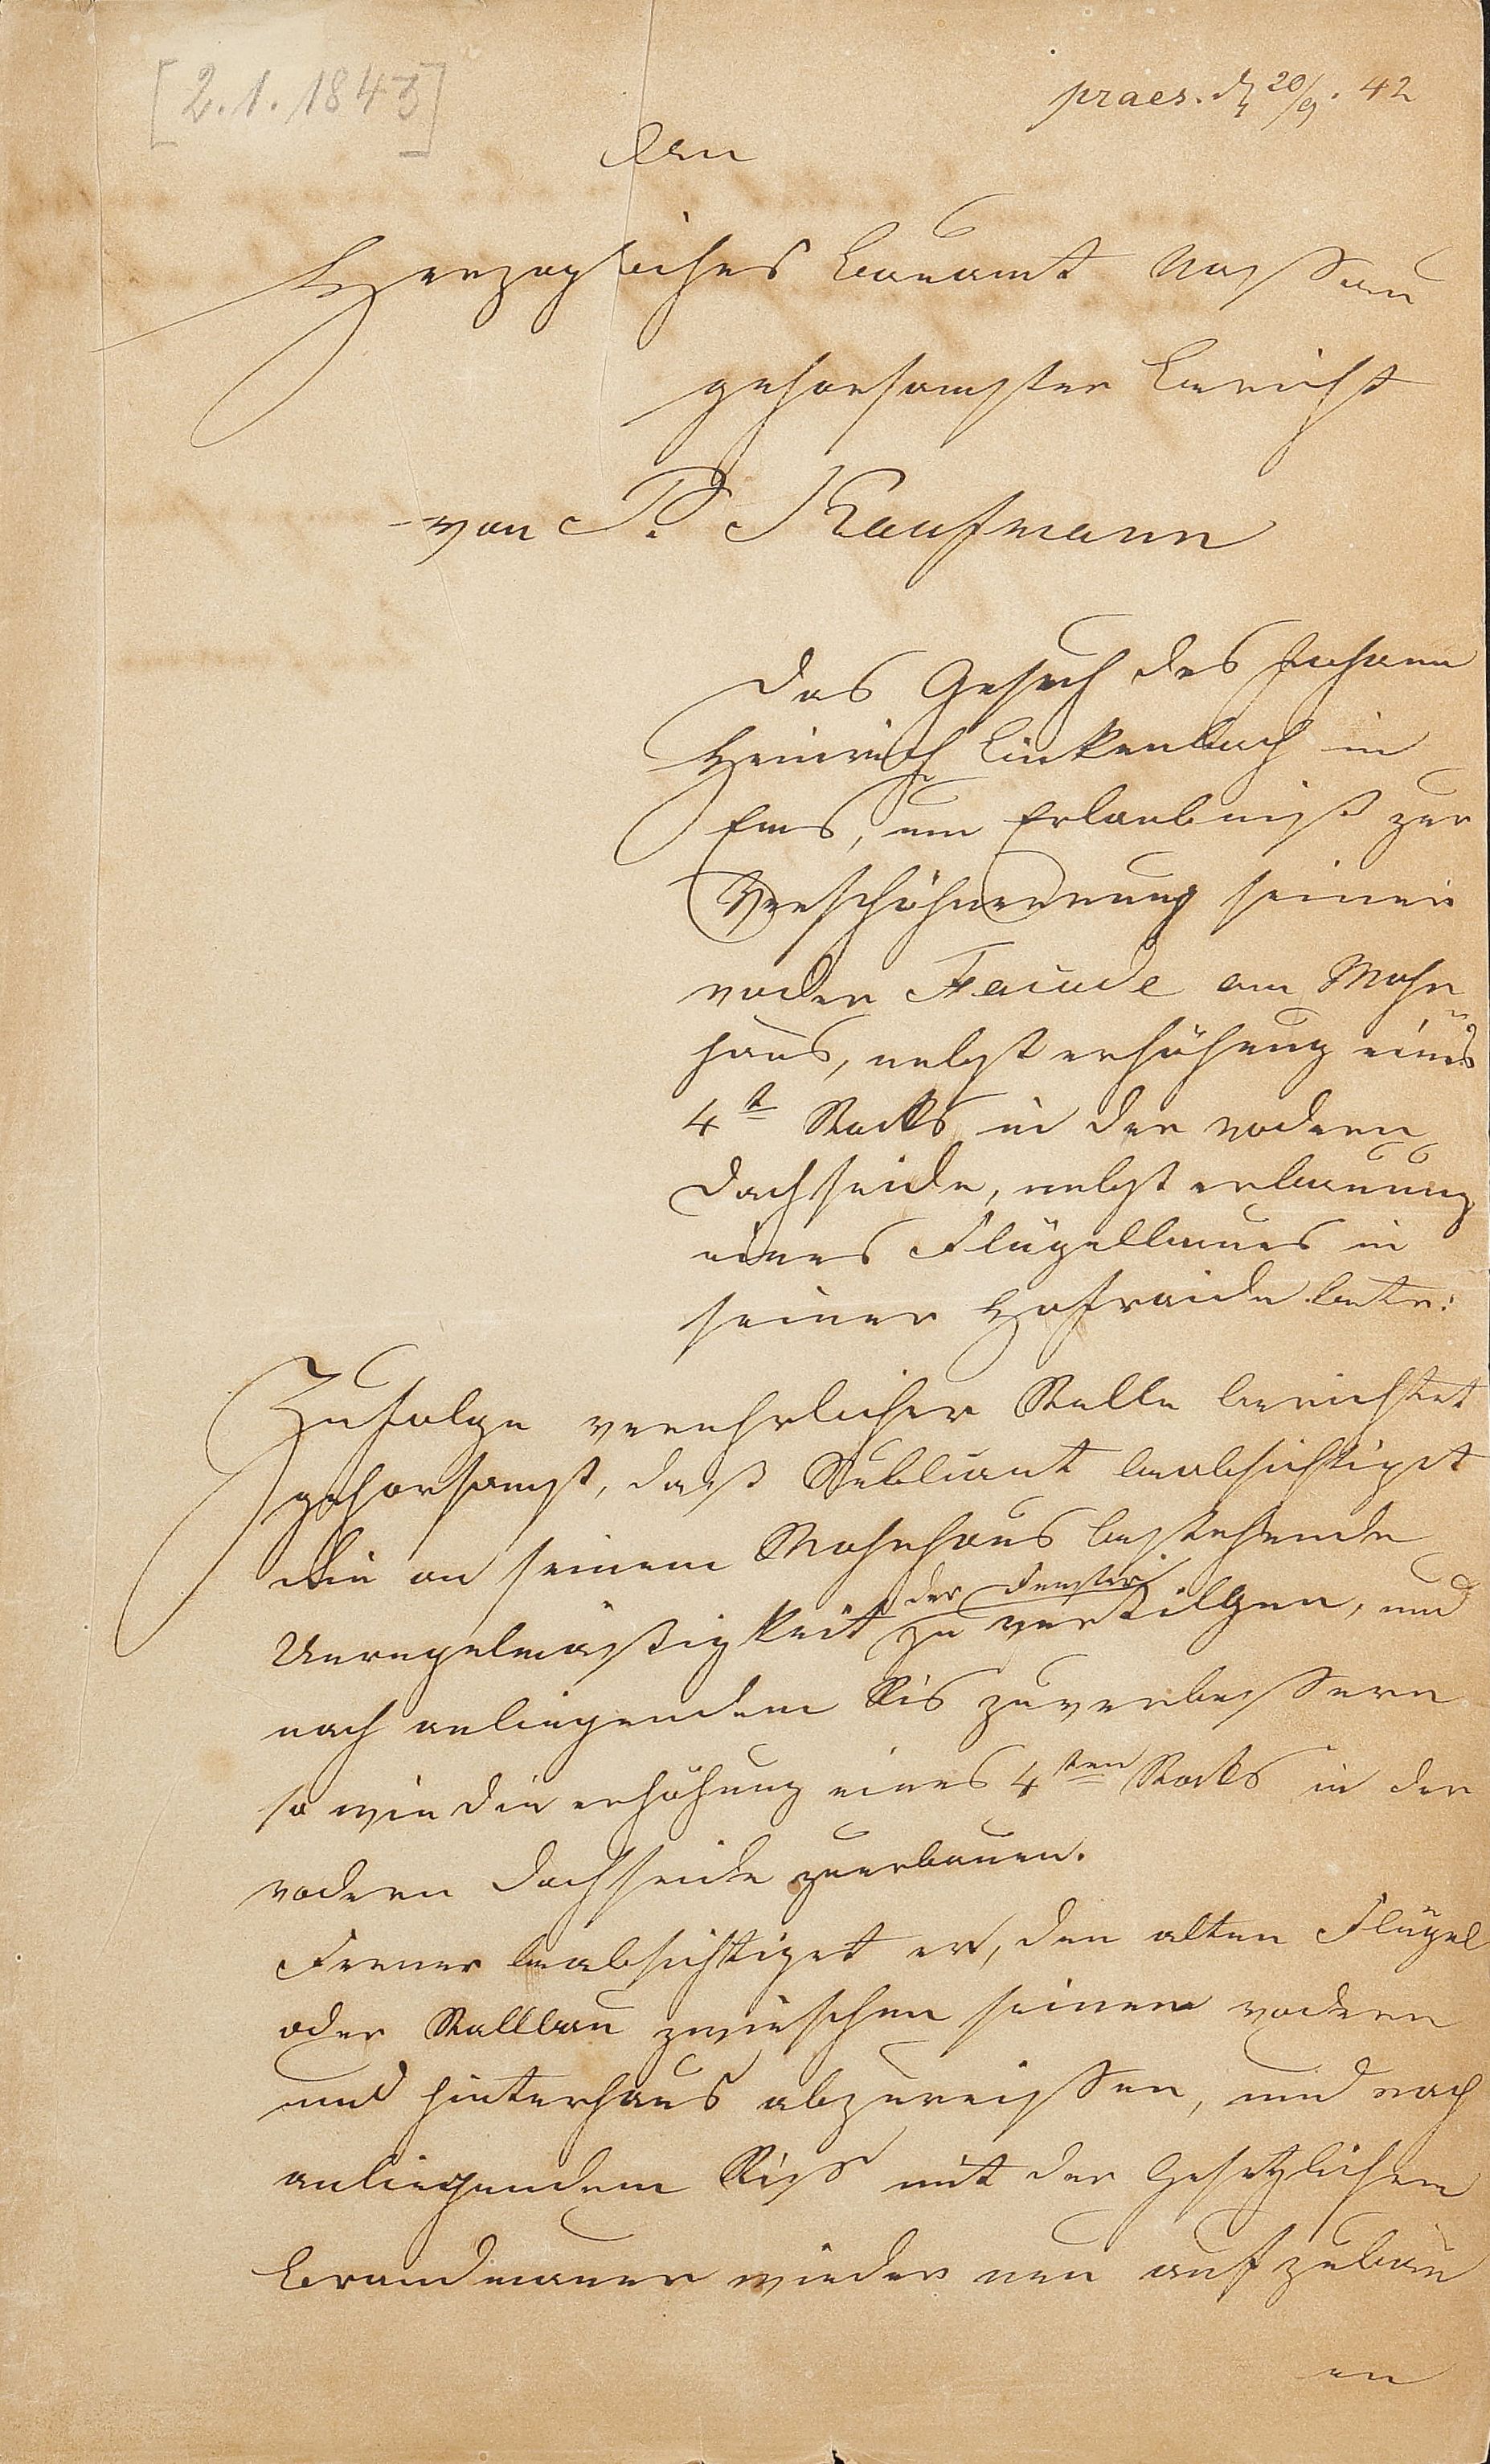 [2.1.1843]
praes. d 20/9. 42
An
Herzogliches Bauamt Nassau
gehorsamster Bericht
von P. Kaufmann
Das Gesuch des Johann
Heinrich Linkenbach in
Ems, um Erlaubniß zur
Verschöhnerung seiner
vodern Facade am Wohn
haus, nebst erhöhung eines
4t Stocks in der vodern
Dachseide, nebst erbauung
eines Flügelbaues in
seiner Hofraide betr:
Zufolge verehrlicher Stelle berichtet
gehorsamst, daß Sublicant beabsichtiget
die an seinem Wohnhaus bestehende
der Fenster
Unregelmäßigkeit zu vertilgen, und
nach anliegendem Ris zuverbessern
so wie die erhöhung eines 4ten Stocks in der
vodern Dachseide zuerbauen.
Ferner beabsichtiget er, den alten Flügel
oder Stallbau zwieschen seinem vodern
und hinterhaus abzureissen, und nach
anliegendem Riss mit der Gesetzlichen
Brandmauer wieder neu aufzubau
en